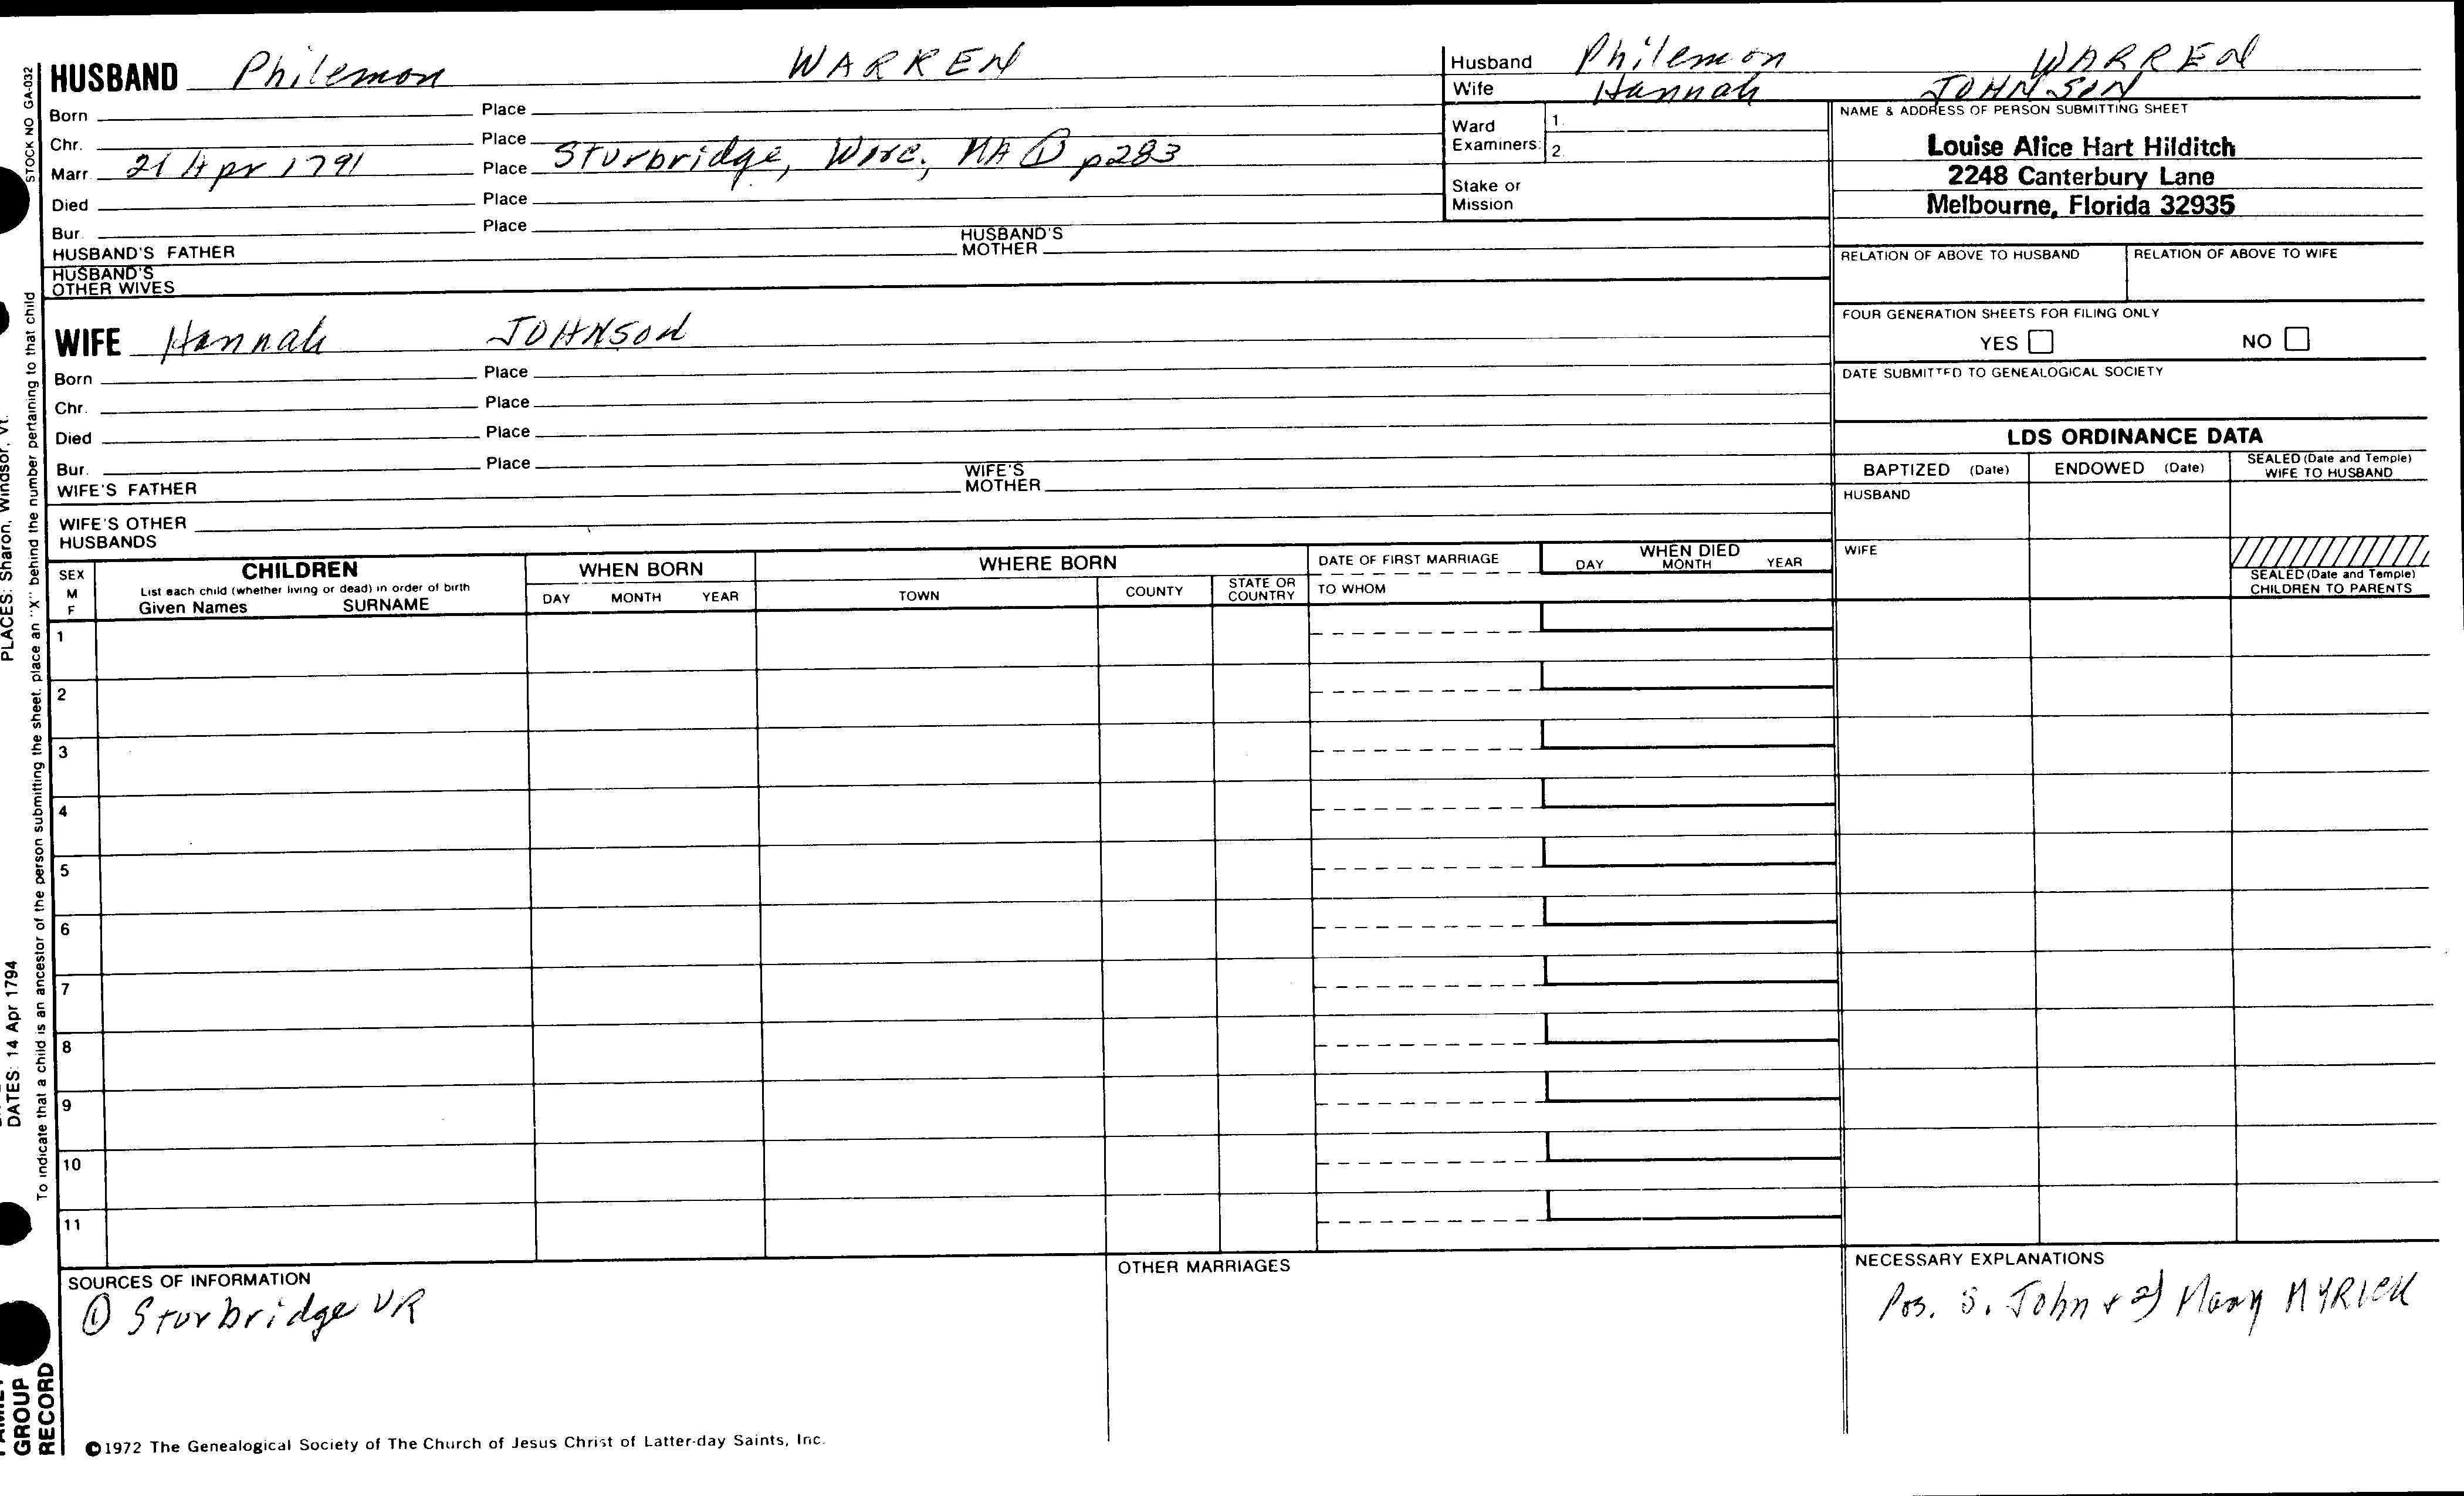 HUSBAND Philemon WARREN
Born Place
Chr. Place
Marr. 21 Apr 1791 Place Sturbridge, Worc, MA ① p283
Died Place
Bur. Place
HUSBAND'S FATHER HUSBAND'S MOTHER
HUSBAND'S OTHER WIVES
WIFE Hannah JOHNSON
Born Place
Chr. Place
Died Place
Bur. Place
WIFE'S FATHER WIFE'S MOTHER
WIFE'S OTHER HUSBANDS
Husband Philemon WARREN
Wife Hannah JOHNSON
Ward Examiners: 1. 2.
Stake or Mission
NAME & ADDRESS OF PERSON SUBMITTING SHEET
Louise Alice Hart Hilditch
2248 Canterbury Lane
Melbourne, Florida 32935
RELATION OF ABOVE TO HUSBAND RELATION OF ABOVE TO WIFE
FOUR GENERATION SHEETS FOR FILING ONLY
YES NO
DATE SUBMITTED TO GENEALOGICAL SOCIETY
LDS ORDINANCE DATA
BAPTIZED (Date) ENDOWED (Date) SEALED (Date and Temple) WIFE TO HUSBAND
HUSBAND
WIFE
SEALED (Date and Temple) CHILDREN TO PARENTS
SEX M F
CHILDREN
List each child (whether living or dead) in order of birth
Given Names SURNAME
WHEN BORN
DAY MONTH YEAR
WHERE BORN
TOWN COUNTY STATE OR COUNTRY
DATE OF FIRST MARRIAGE
TO WHOM
WHEN DIED
DAY MONTH YEAR
1
2
3
4
5
6
7
8
9
10
11
SOURCES OF INFORMATION
① Sturbridge VR
OTHER MARRIAGES
NECESSARY EXPLANATIONS
Pos. S. John + 2) Mary MYRICK
©1972 The Genealogical Society of The Church of Jesus Christ of Latter-day Saints, Inc.
STOCK NO GA-032
To indicate that a child is an ancestor of the person submitting the sheet, place an "X" behind the number pertaining to that child
PLACES: Sharon, Windsor, Vt.
DATES: 14 Apr 1794
GROUP
RECORD